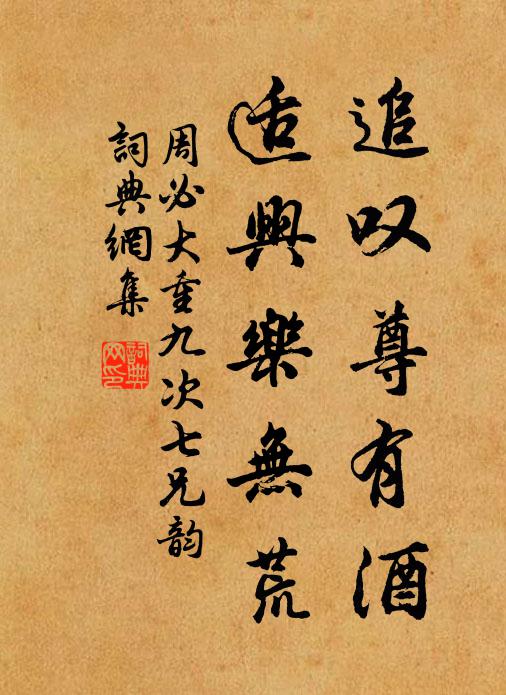 追叹尊有酒
适興樂無荒
周必大重九次七兄韵
詞典網集
詞典網印